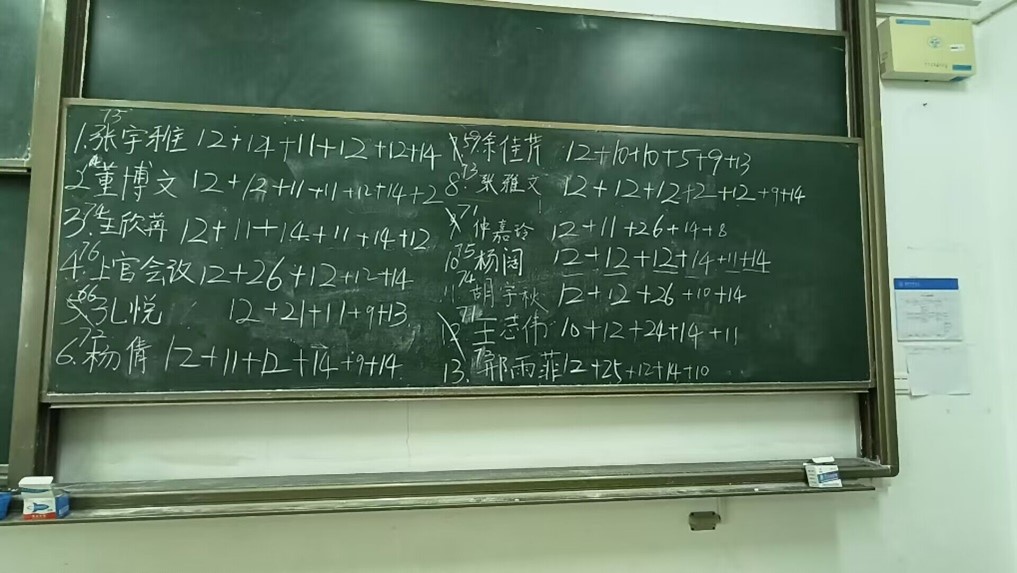 75
1.张宇雅 12+14+11+12+12+14
74
2.董博文 12+12+11+11+12+14+2
74
3.王欣苒 12+11+14+11+14+12
76
4.上官会改 12+26+12+12+14
66
5.孔悦 12+21+11+9+13
72
6.杨倩 12+11+12+14+9+14
59
7.余佳芹 12+10+10+5+9+13
73
8.张雅文 12+12+12+2+12+9+14
71
9.仲嘉玲 12+11+26+14+8
75
10.杨阔 12+12+12+14+11+14
74
11.胡宇秋 12+12+26+10+14
71
12.王志伟 10+12+24+14+11
73
13.邢雨菲 12+25+12+14+10